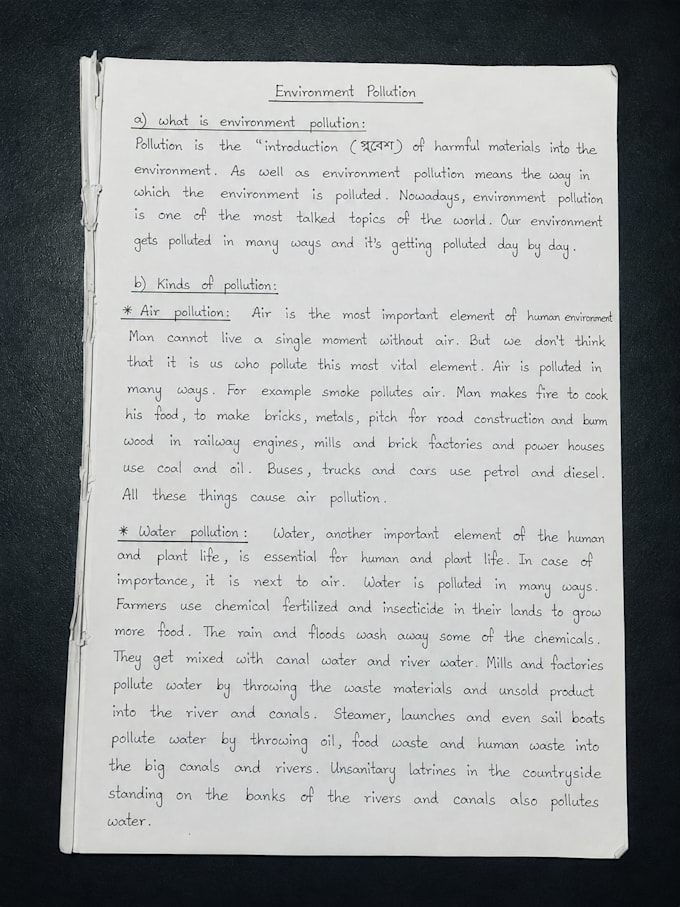 Environment Pollution
a) what is environment pollution:
Pollution is the "introduction (প্রবেশ) of harmful materials into the
environment. As well as environment pollution means the way in
which the environment is polluted. Nowadays, environment pollution
is one of the most talked topics of the world. Our environment
gets polluted in many ways and it's getting polluted day by day.
b) Kinds of pollution:
* Air pollution: Air is the most important element of human environment
Man cannot live a single moment without air. But we don't think
that it is us who pollute this most vital element. Air is polluted in
many ways. For example smoke pollutes air. Man makes fire to cook
his food, to make bricks, metals, pitch for road construction and burn
wood in railway engines, mills and brick factories and power houses
use coal and oil. Buses, trucks and cars use petrol and diesel.
All these things cause air pollution.
* Water pollution: Water, another important element of the human
and plant life, is essential for human and plant life. In case of
importance, it is next to air. Water is polluted in many ways.
Farmers use chemical fertilized and insecticide in their lands to grow
more food. The rain and floods wash away some of the chemicals.
They get mixed with canal water and river water. Mills and factories
pollute water by throwing the waste materials and unsold product
into the river and canals. Steamer, launches and even sail boats
pollute water by throwing oil, food waste and human waste into
the big canals and rivers. Unsanitary latrines in the countryside
standing on the banks of the rivers and canals also pollutes
water.